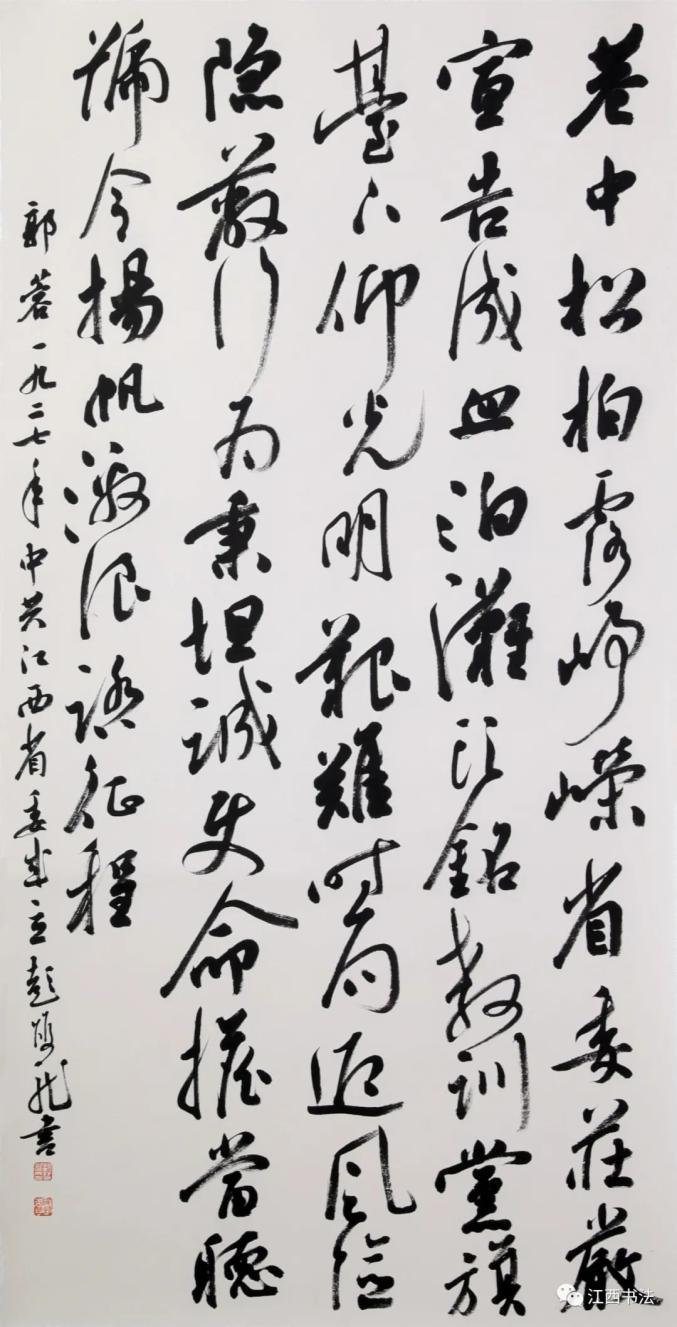 巷中松柏露峥嵘省委莊嚴
宣告成血泊灘頭銘教訓黨旗
臺下仰光明艱難时局迎風險
隐蔽行为秉坦誠史命擔當聽
號令揚帆激浪踏征程
郭蓉一九二七年中共江西省委成立彭雙龙書
江西书法